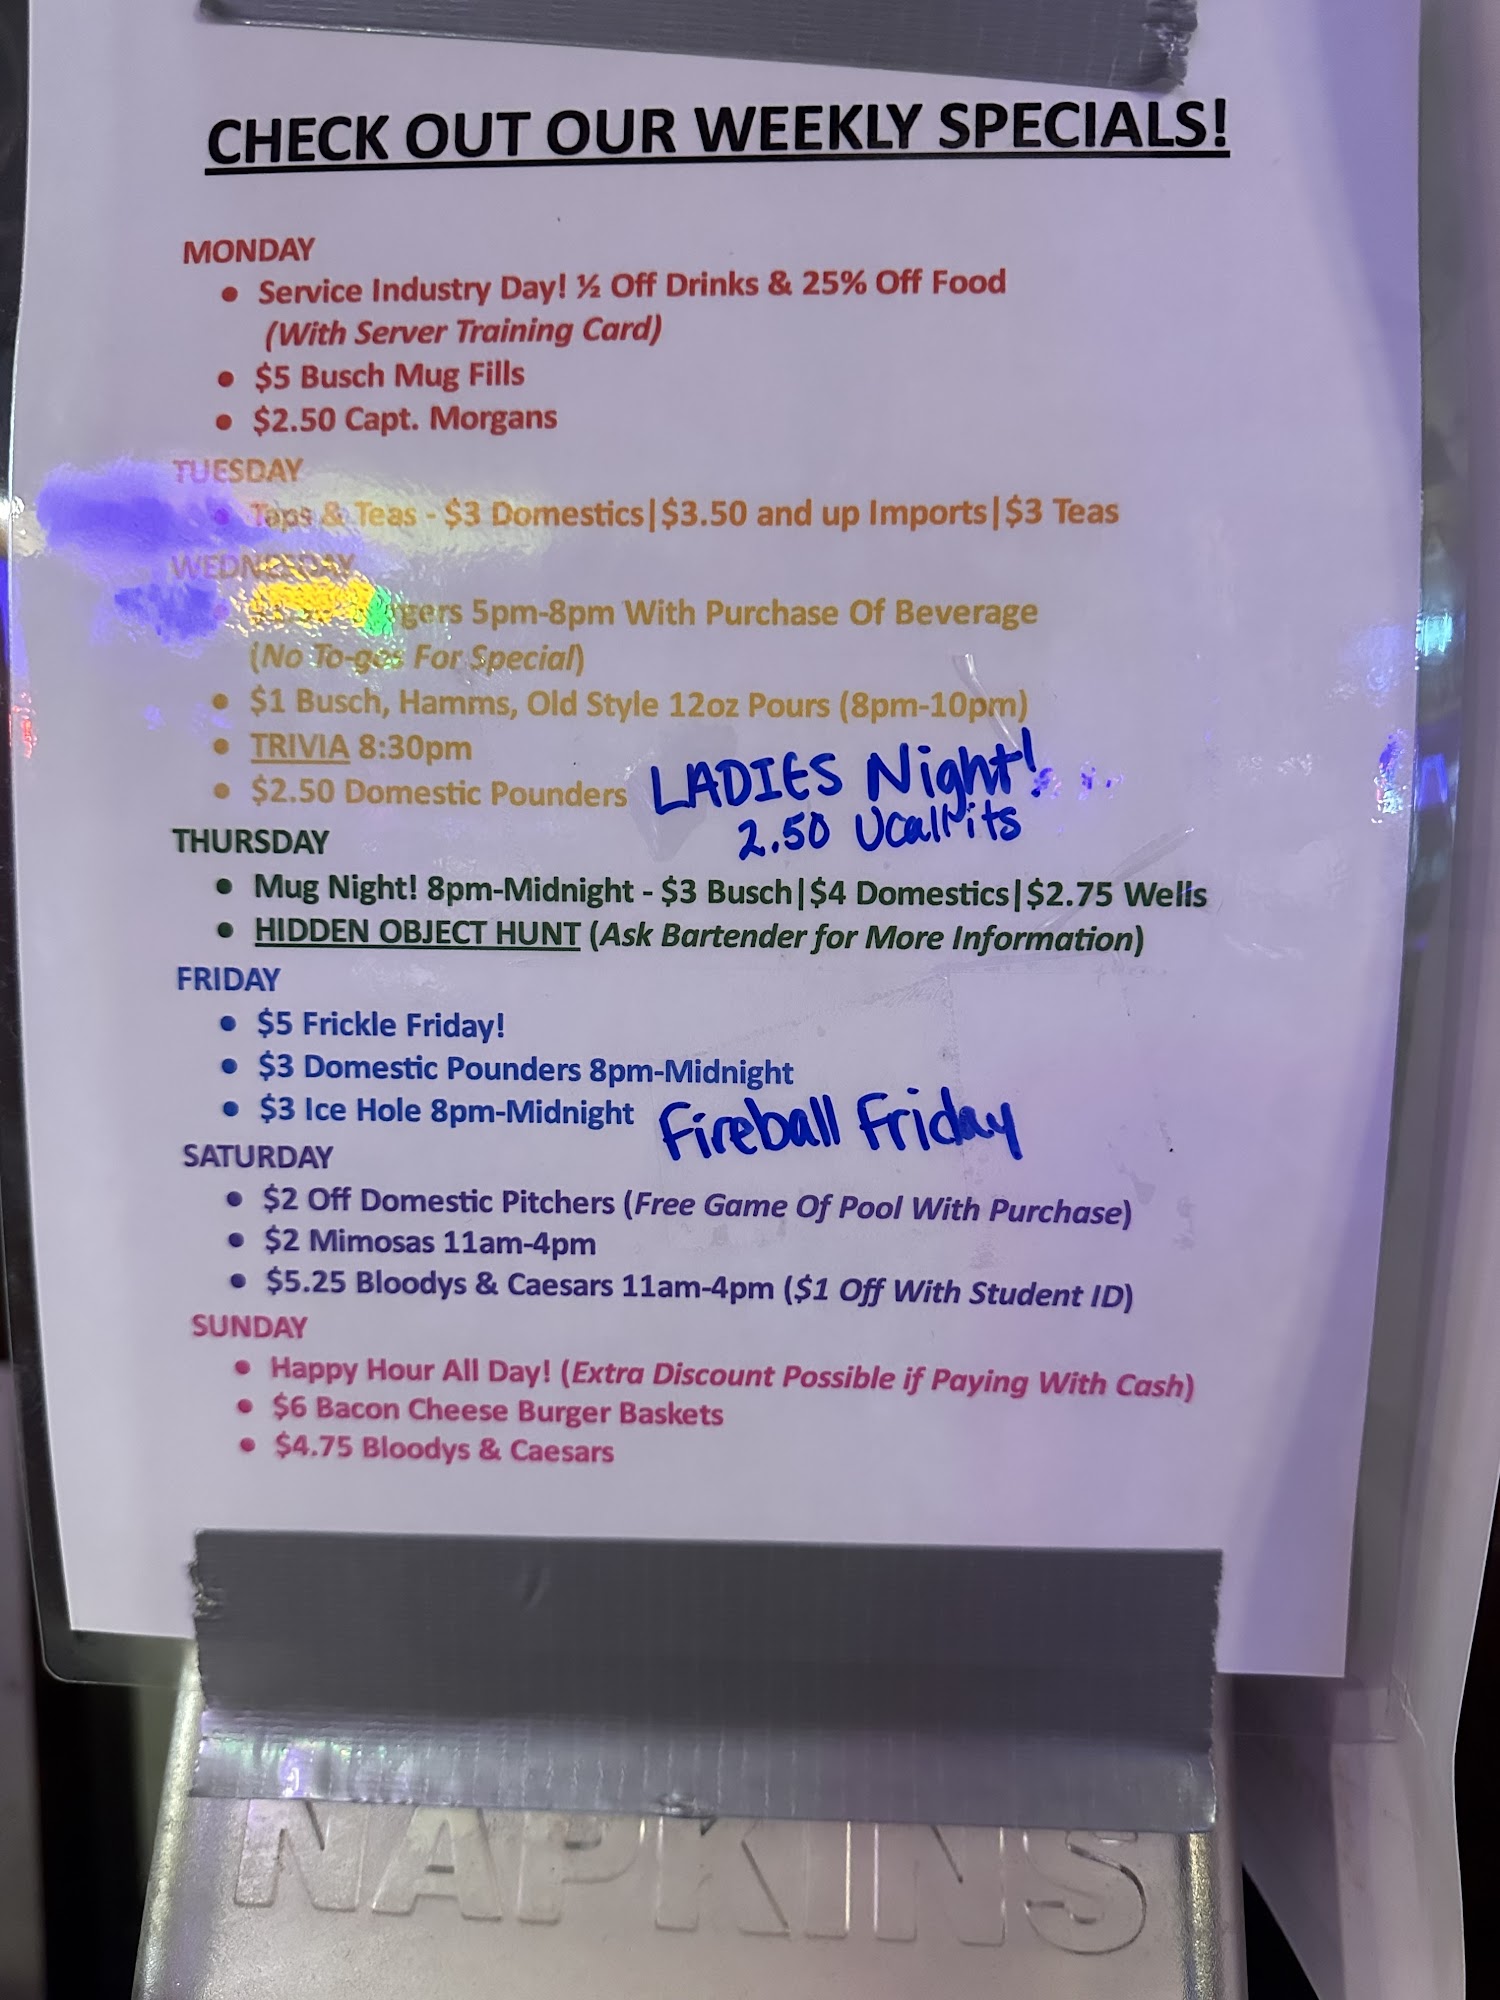 CHECK OUT OUR WEEKLY SPECIALS!
MONDAY
• Service Industry Day! ½ Off Drinks & 25% Off Food
(With Server Training Card)
• $5 Busch Mug Fills
• $2.50 Capt. Morgans
TUESDAY
• Taps & Teas - $3 Domestics|$3.50 and up Imports|$3 Teas
WEDNESDAY
5pm-8pm With Purchase Of Beverage
(No To-gos For Special)
• $1 Busch, Hamms, Old Style 12oz Pours (8pm-10pm)
• TRIVIA 8:30pm
• $2.50 Domestic Pounders LADIES Night!
2.50 UcallIts
THURSDAY
• Mug Night! 8pm-Midnight - $3 Busch|$4 Domestics|$2.75 Wells
• HIDDEN OBJECT HUNT (Ask Bartender for More Information)
FRIDAY
• $5 Frickle Friday!
• $3 Domestic Pounders 8pm-Midnight
• $3 Ice Hole 8pm-Midnight Fireball Friday
SATURDAY
• $2 Off Domestic Pitchers (Free Game Of Pool With Purchase)
• $2 Mimosas 11am-4pm
• $5.25 Bloodys & Caesars 11am-4pm ($1 Off With Student ID)
SUNDAY
• Happy Hour All Day! (Extra Discount Possible if Paying With Cash)
• $6 Bacon Cheese Burger Baskets
• $4.75 Bloodys & Caesars
NAPKINS